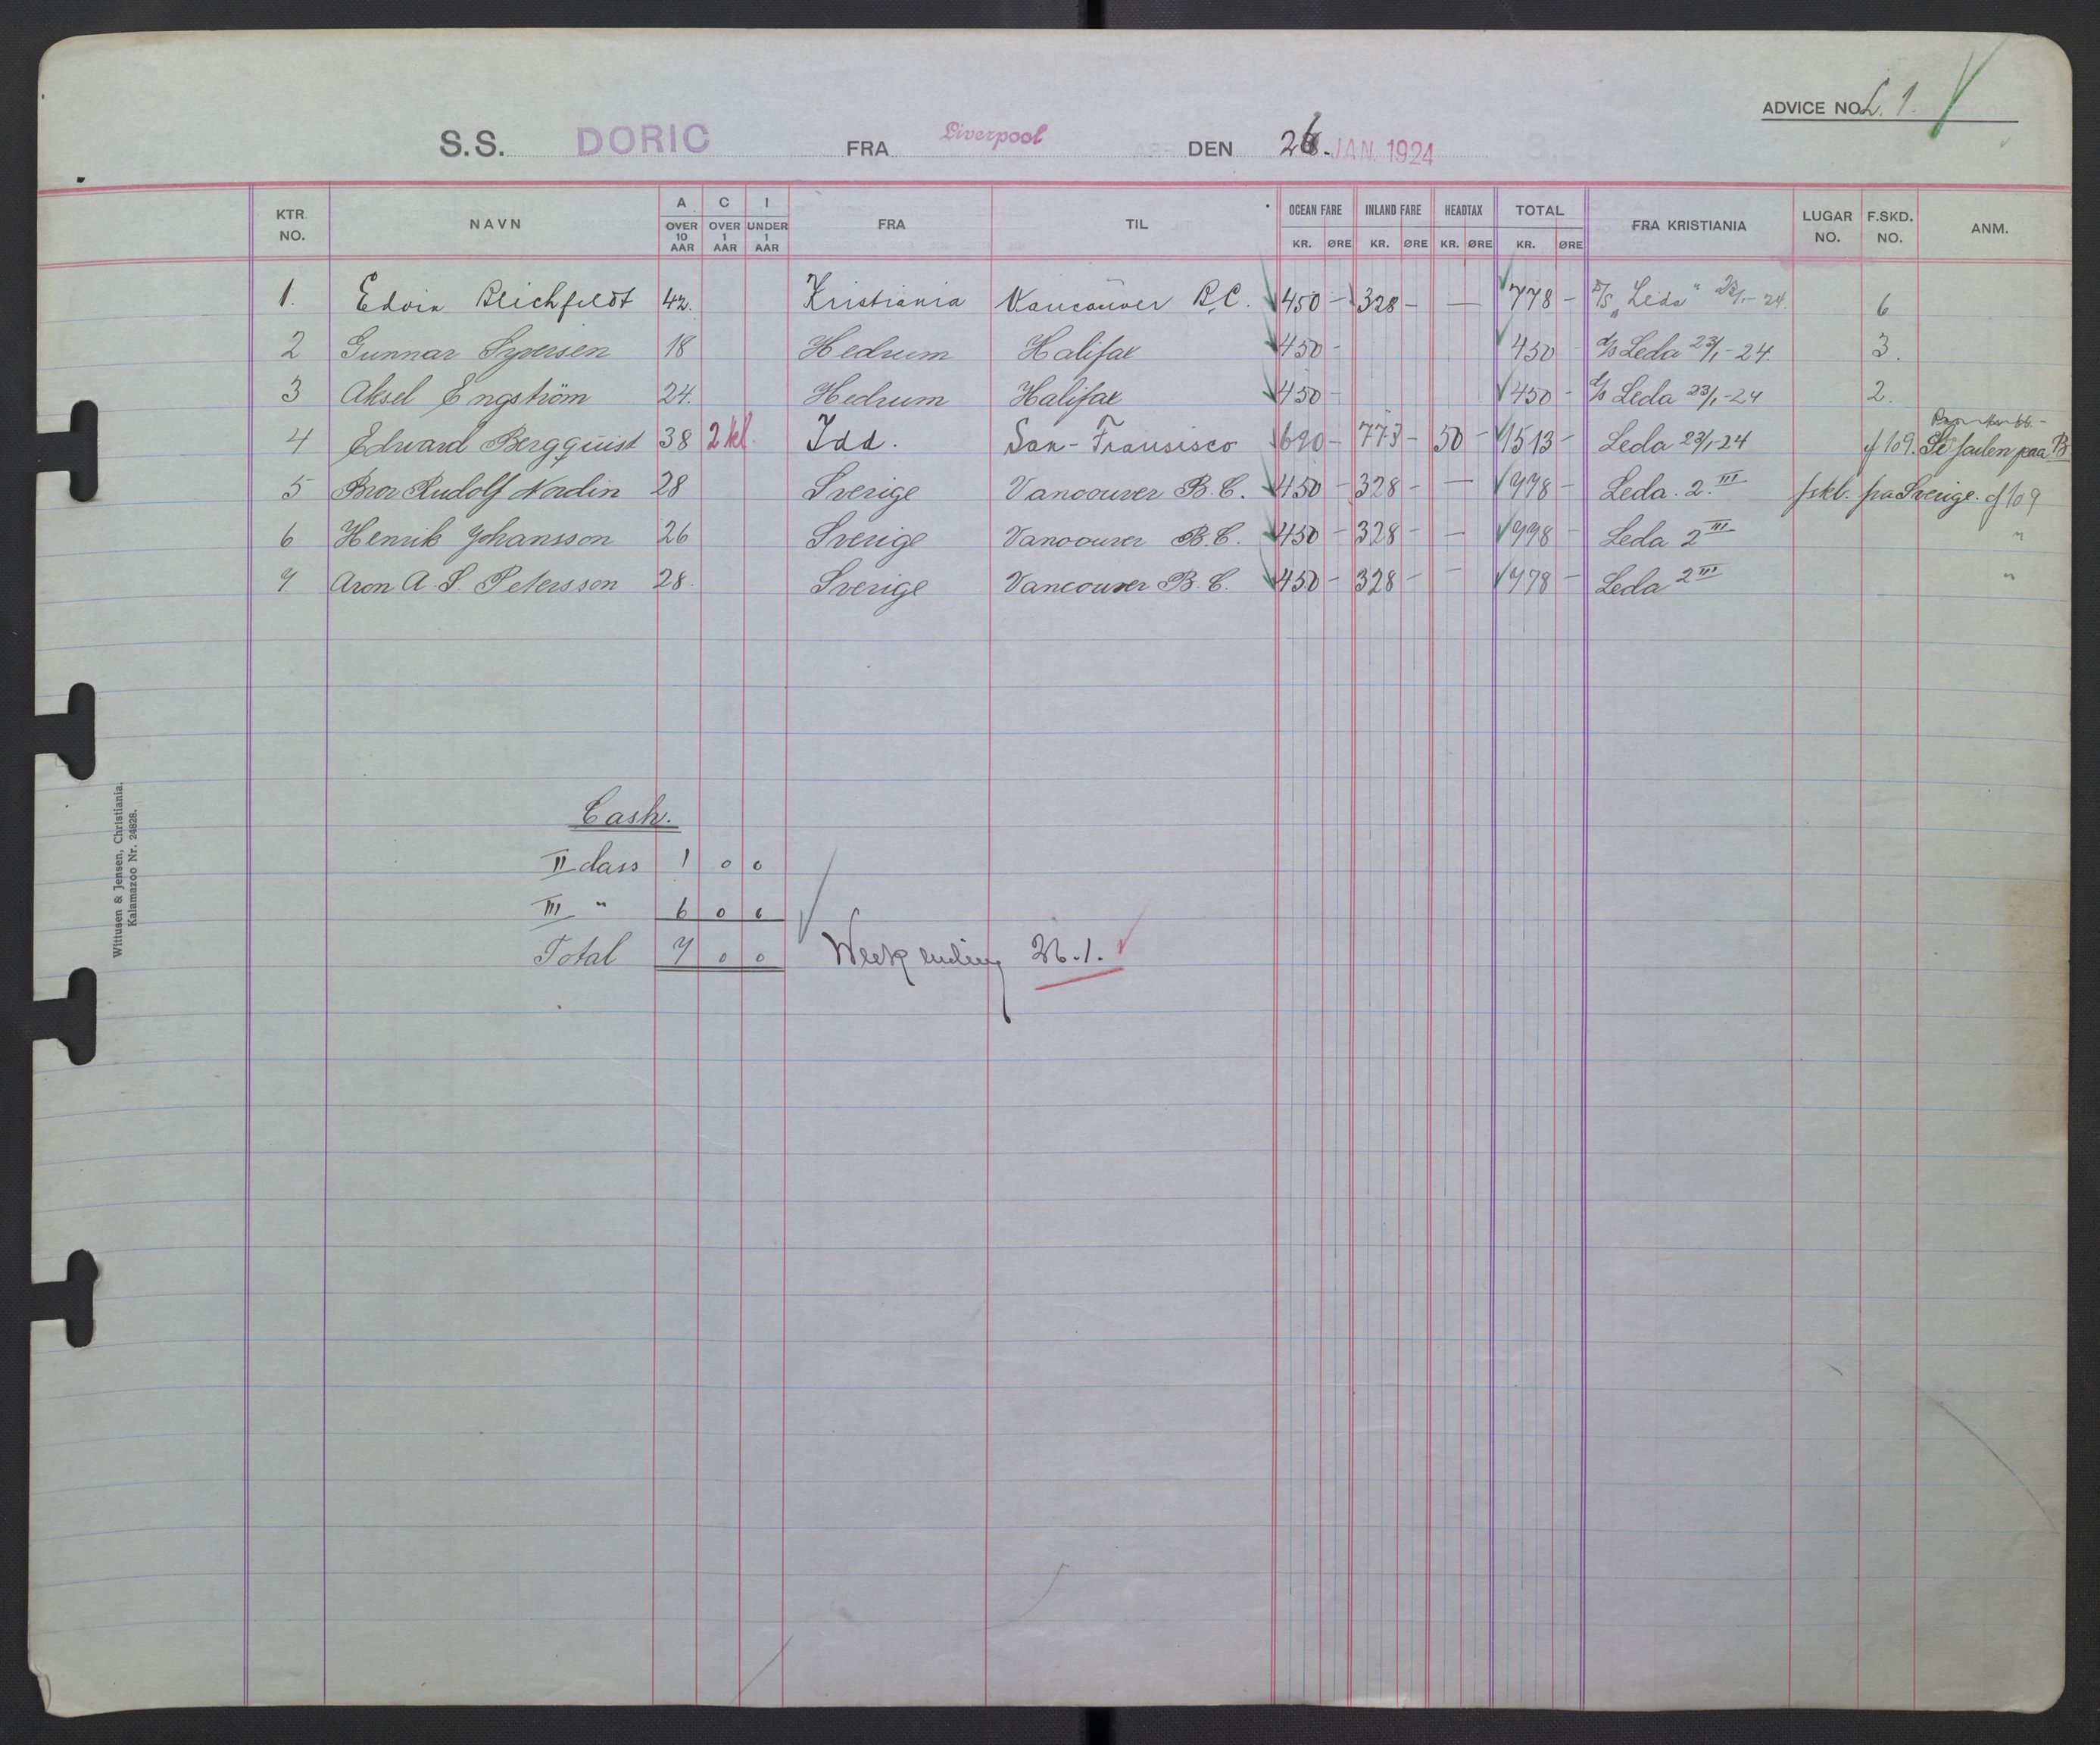 ADVICE NO. L. 1.
S.S. DORIC FRA Liverpool DEN 26. JAN. 1924
KTR. NO. NAVN A OVER 10 AAR C OVER 1 AAR I UNDER 1 AAR FRA TIL OCEAN FARE KR. ØRE INLAND FARE KR. ØRE HEADTAX KR. ØRE TOTAL KR. ØRE FRA KRISTIANIA LUGAR NO. F.SKD. NO. ANM.
1. Edvin Bleichfeldt 42. Kristiania Vancouver B.C. 450 - 328 - — 778 - D/S "Leda" 23/1-24. 6
2 Gunnar Syversen 18 Hedrum Halifax 450 - 450 - D/S Leda 23/1-24. 3.
3 Aksel Engström 24. Hedrum Halifax 450 - 450 - D/S Leda 23/1-24 2.
4 Edward Bergquist 38 2 kl. Idd. San-Fransisco 690 - 773 - 50 - 1513 - Leda 23/1-24 f 109. Se saken paa B
5 Bror Rudolf Nordin 28 Sverige Vancouver B.C. 450 - 328 - — 778 - Leda. 2. III fskl. fra Sverige. f 109
6 Henrik Johansson 26 Sverige Vancouver B.C. 450 - 328 - — 778 - Leda 2 III "
7 Aron A. S. Petersson 28. Sverige Vancouver B.C. 450 - 328 - - 778 - Leda 2 III "
Cash.
II class 1 0 0
III " 6 0 0
Total 7 0 0 Week ending 26.1.
Wittusen & Jensen, Christiania.
Kalamazoo Nr. 24828.